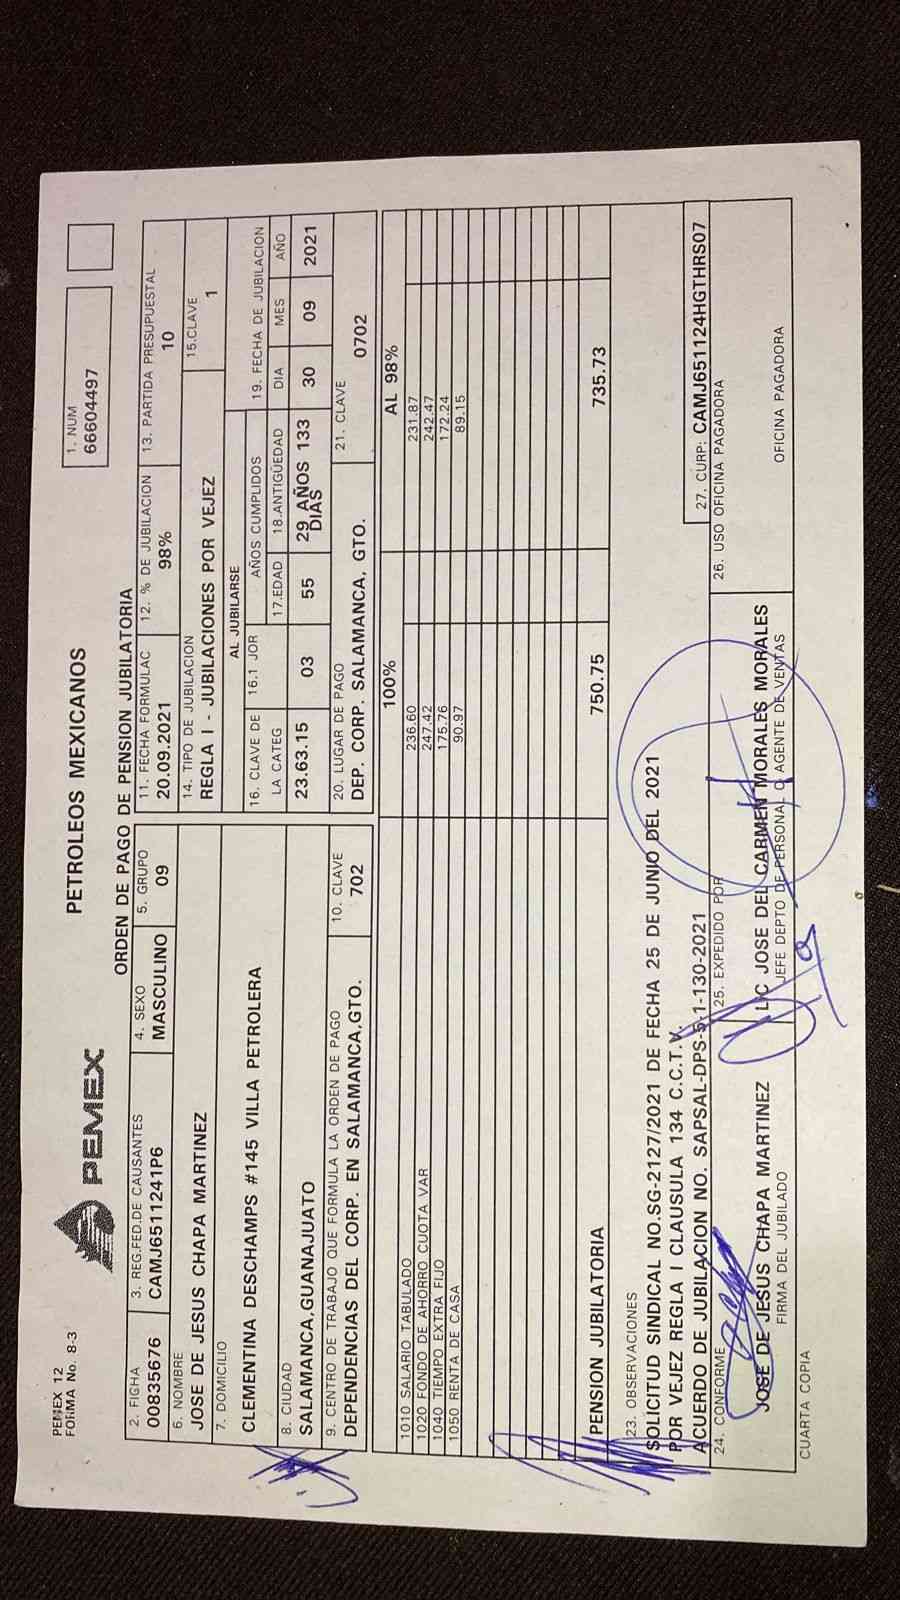 PEMEX 12
FORMA No. 8-3
PEMEX
PETROLEOS MEXICANOS
1. NUM
66604497
ORDEN DE PAGO DE PENSION JUBILATORIA
2. FICHA
00835676
3. REG.FED.DE CAUSANTES
CAMJ6511241P6
4. SEXO
MASCULINO
5. GRUPO
09
11. FECHA FORMULAC
20.09.2021
12. % DE JUBILACION
98%
13. PARTIDA PRESUPUESTAL
10
6. NOMBRE
JOSE DE JESUS CHAPA MARTINEZ
14. TIPO DE JUBILACION
REGLA I - JUBILACIONES POR VEJEZ
15.CLAVE
1
7. DOMICILIO
CLEMENTINA DESCHAMPS #145 VILLA PETROLERA
AL JUBILARSE
16. CLAVE DE
LA CATEG
23.63.15
16.1 JOR
03
AÑOS CUMPLIDOS
17.EDAD
55
18.ANTIGÜEDAD
29 AÑOS 133
DIAS
19. FECHA DE JUBILACION
DIA MES AÑO
30 09 2021
8. CIUDAD
SALAMANCA,GUANAJUATO
9. CENTRO DE TRABAJO QUE FORMULA LA ORDEN DE PAGO
DEPENDENCIAS DEL CORP. EN SALAMANCA,GTO.
10. CLAVE
702
20. LUGAR DE PAGO
DEP. CORP. SALAMANCA, GTO.
21. CLAVE
0702
100% AL 98%
1010 SALARIO TABULADO 236.60 231.87
1020 FONDO DE AHORRO CUOTA VAR 247.42 242.47
1040 TIEMPO EXTRA FIJO 175.76 172.24
1050 RENTA DE CASA 90.97 89.15
PENSION JUBILATORIA 750.75 735.73
23. OBSERVACIONES
SOLICITUD SINDICAL NO.SG-2127/2021 DE FECHA 25 DE JUNIO DEL 2021
POR VEJEZ REGLA I CLAUSULA 134 C.C.T.V.
ACUERDO DE JUBILACION NO. SAPSAL-DPS-5-1-130-2021
27. CURP: CAMJ651124HGTHRS07
24. CONFORME
JOSE DE JESUS CHAPA MARTINEZ
FIRMA DEL JUBILADO
25. EXPEDIDO POR
LIC JOSE DEL CARMEN MORALES MORALES
JEFE DEPTO DE PERSONAL O AGENTE DE VENTAS
26. USO OFICINA PAGADORA
OFICINA PAGADORA
CUARTA COPIA